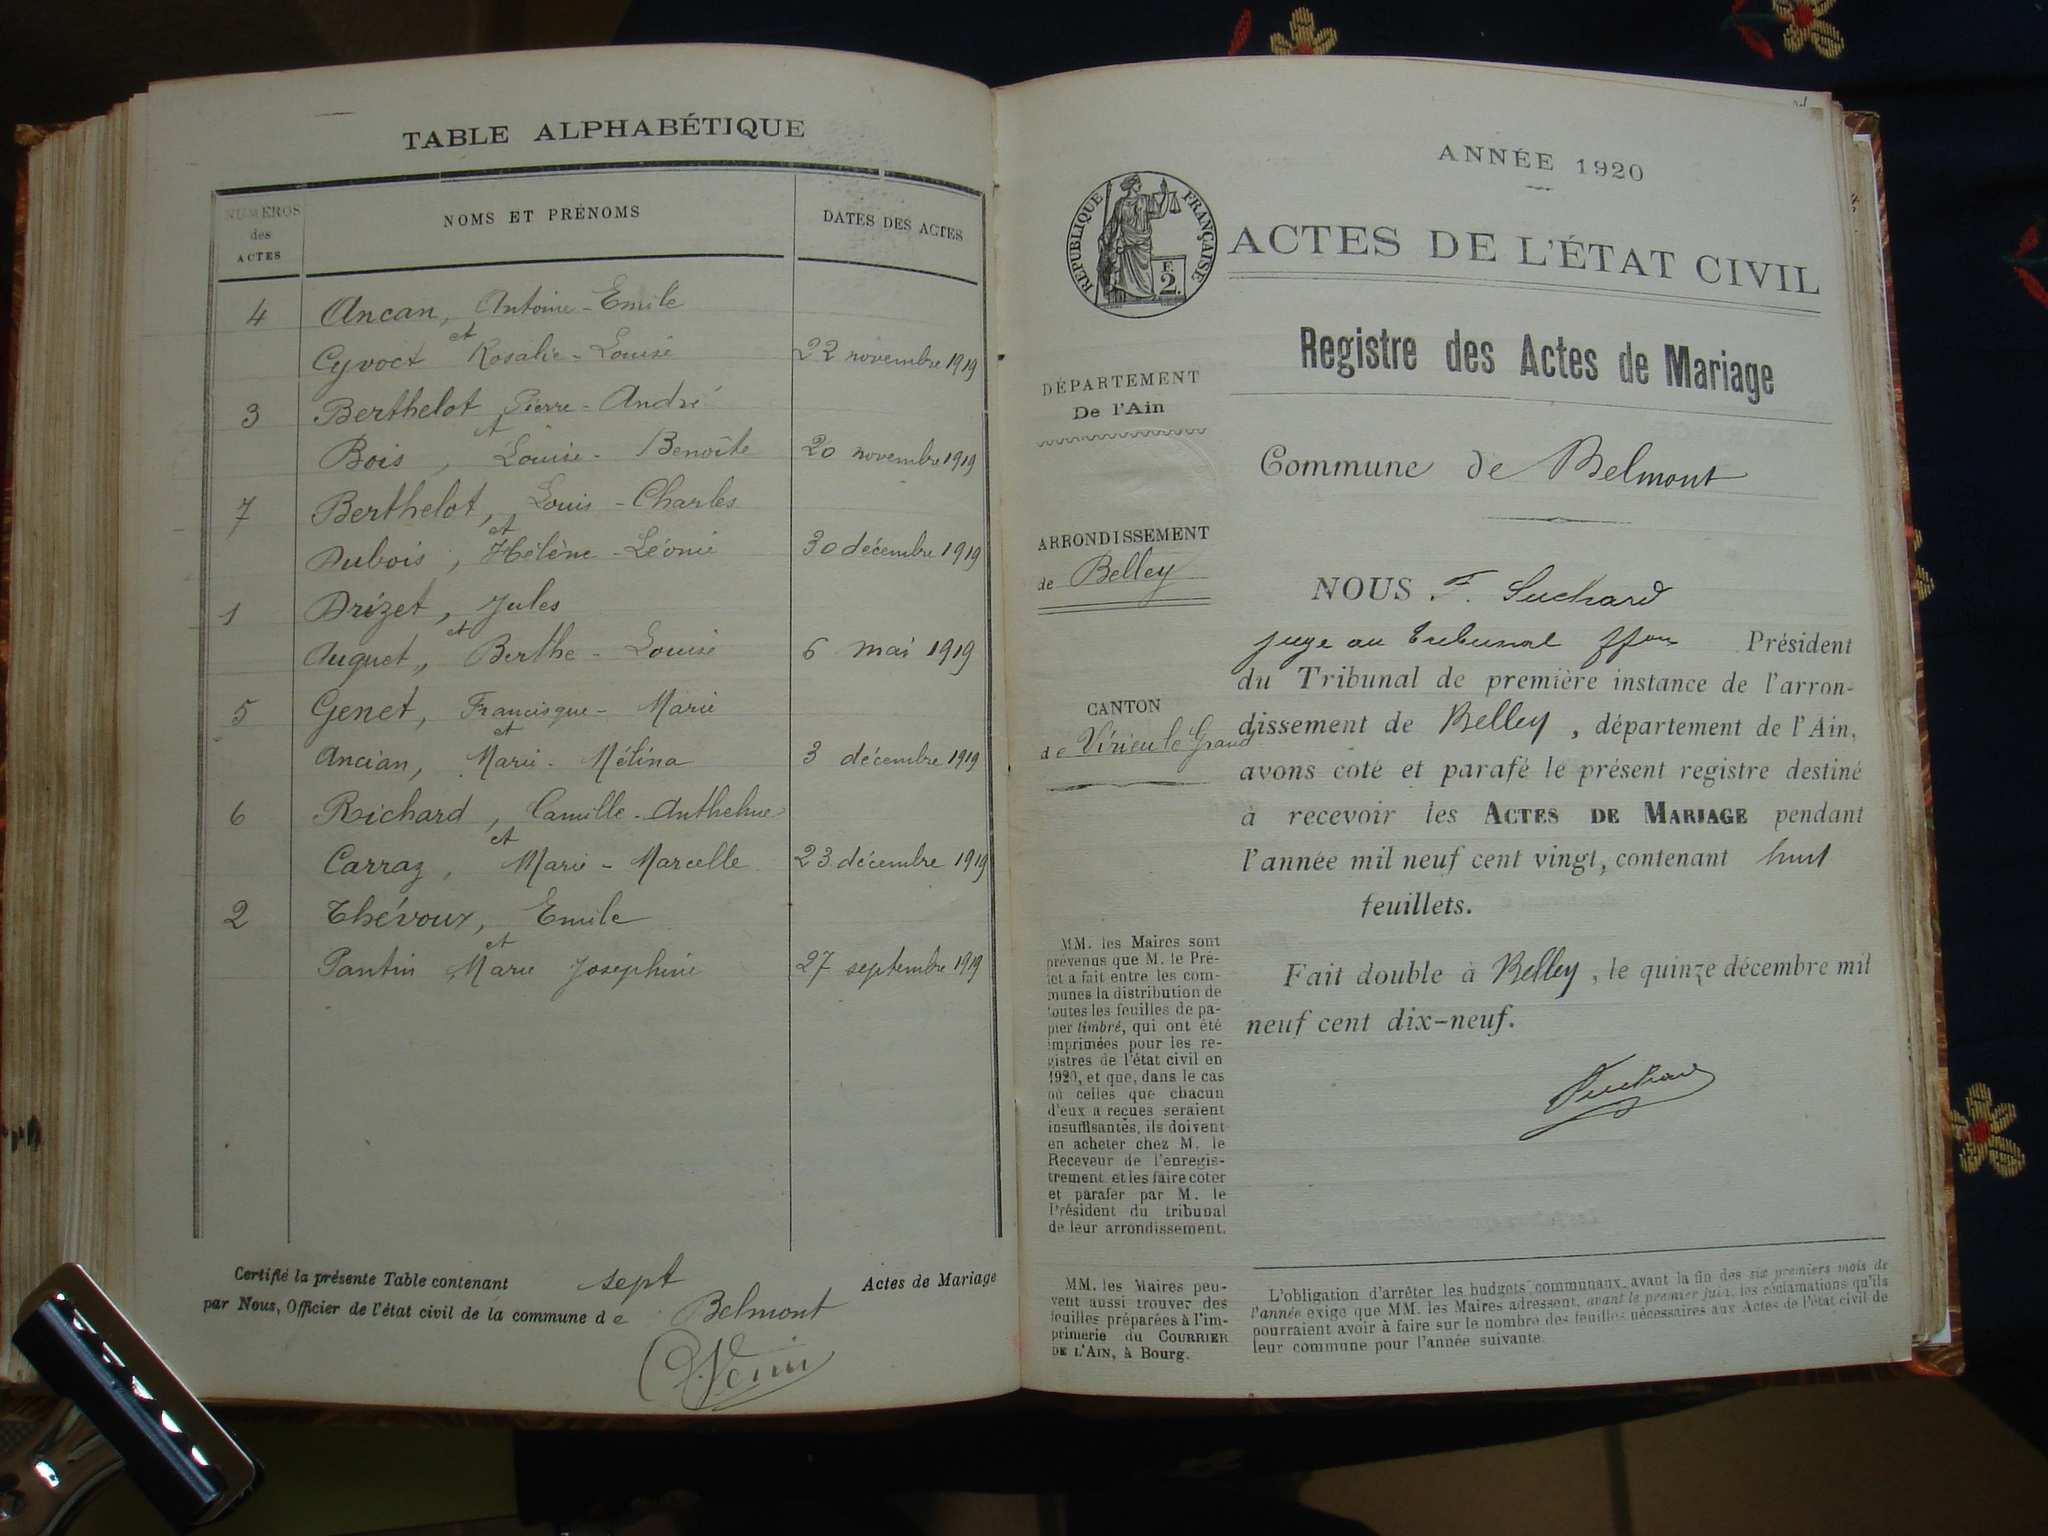 TABLE ALPHABÉTIQUE
NUMÉROS des ACTES
NOMS ET PRÉNOMS
DATES DES ACTES
4 Ancian, Antoine-Emile
et
Cyvoct Rosalie-Louise 22 novembre 1919
3 Berthelot Pierre-André
et
Bois, Louise-Benoîte 20 novembre 1919
7 Berthelot, Louis-Charles
et
Dubois, Hélène-Léonie 30 décembre 1919
1 Drizet, Jules
et
Auguet, Berthe-Louise 6 mai 1919
5 Genet, Francisque-Marie
et
Ancian, Marie-Mélina 3 décembre 1919
6 Richard, Camille-Anthelme
et
Carraz, Marie-Marcelle 23 décembre 1919
2 Thévoux, Emile
et
Pantin Marie Josephine 27 septembre 1919
Certifié la présente Table contenant sept Actes de Mariage
par Nous, Officier de l'état civil de la commune de Belmont
ANNÉE 1920
RÉPUBLIQUE FRANÇAISE
F. 2.
ACTES DE L'ÉTAT CIVIL
Registre des Actes de Mariage
DÉPARTEMENT
De l'Ain
Commune de Belmont
ARRONDISSEMENT
de Belley
CANTON
de Virieu le Grand
NOUS F. Suchard
juge au tribunal ffon Président
du Tribunal de première instance de l'arron-
dissement de Belley, département de l'Ain,
avons coté et parafé le présent registre destiné
à recevoir les ACTES DE MARIAGE pendant
l'année mil neuf cent vingt, contenant huit
feuillets.
Fait double à Belley, le quinze décembre mil
neuf cent dix-neuf.
Suchard
MM. les Maires sont
prévenus que M. le Pré-
fet a fait entre les com-
munes la distribution de
toutes les feuilles de pa-
pier timbré, qui ont été
imprimées pour les re-
gistres de l'état civil en
1920, et que, dans le cas
où celles que chacun
d'eux a reçues seraient
insuffisantes, ils doivent
en acheter chez M. le
Receveur de l'enregis-
trement et les faire coter
et parafer par M. le
Président du tribunal
de leur arrondissement.
MM. les Maires peu-
vent aussi trouver des
feuilles préparées à l'im-
primerie du COURRIER
DE L'AIN, à Bourg.
L'obligation d'arrêter les budgets communaux avant la fin des six premiers mois de
l'année exige que MM. les Maires adressent, avant le premier juin, les réclamations qu'ils
pourraient avoir à faire sur le nombre des feuilles nécessaires aux Actes de l'état civil de
leur commune pour l'année suivante.